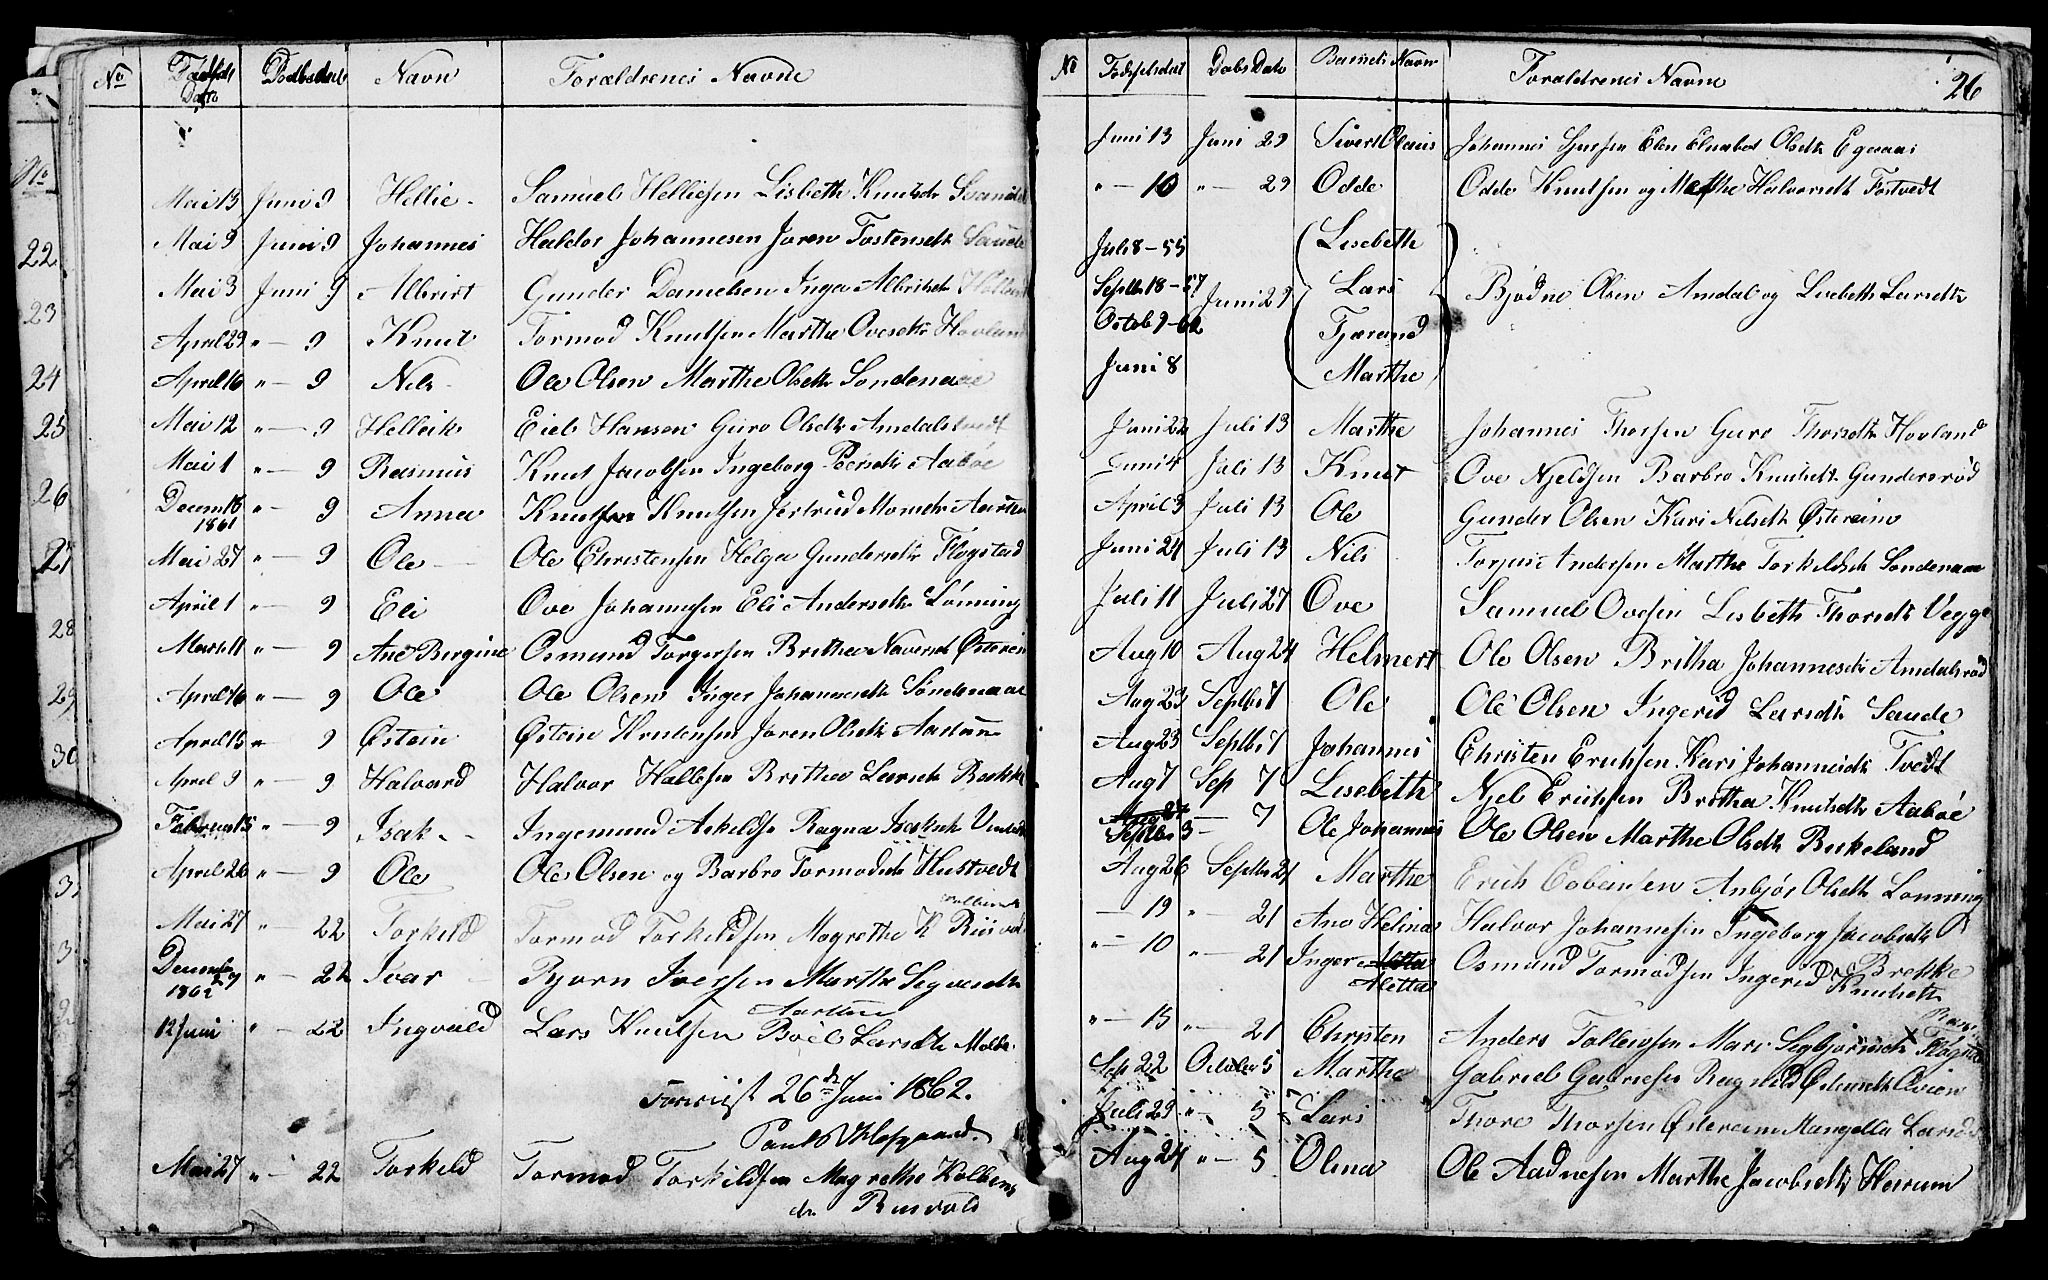 No Fødsels Dato Daabsdato Navn Forældrenes Navne
Mai 13 Juni 9 Hellie Samuel Helliesen Lisbeth Knutsdr
Mai 9 Juni 9 Johannes Haldor Johannesen Joren Tostensdr Saude
Mai 3 Juni 9 Albrict Gunder Danielsen Inga Albrictsdr
April 29 " — 9 Knut Tormod Knutsen Marthe Ovesdtr Hovland
April 16 " — 9 Nils Ole Olsen Marthe Olsdtr Søndenaae
Mai 12 " — 9 Helleik Eiel Hansen Guro Olsdtr Amdalstvedt
Mai 1 " — 9 Rasmus Knut Jacobsen Ingeborg Peersdtr Aabøe
Decem 18 1861 " — 9 Anna Knut Knutsen Jertrud
Mai 27 " — 9 Ole Ole Christensen Helga Gundersdtr Flogstad
April 1 " — 9 Eli Ove Johannesen Eli Andersdtr Lønning
" — 9 Ane Bergine Osmund Torgersen Britha Østerein
April 16 " — 9 Ole Ole Olsen Inger Johannesdtr Søndenaae
April 15 " 9 Østein Østein Knutsen Joren Olsdtr
April 9 " 9 Halvard Halvor Hallesen Britha Larsdtr Bakke
Februar 15 " — 9 Isak Ingemund Askeldsen Ragna Isaksdr
April 26 " — 9 Ole Ole Olsen og Barbro Tormodsdr Hustvedt
Mai 27 " — 22 Torkeld Tormod Torkeldsen Magrethe K
December 1862 " — 22 Ivar Bjørn Iversen Marthe
12 Juni " — 22 Ingvald Lars Knutsen Boel Larsdtr
26de Juni 1862.
Mai 27 " — 22 Torkeld Tormod Torkeldsen Magrethe Kolbens
dr Riisvold
No Fødselsdat Daabs Dato Barnets Navn Forældrenes Navne 26
Juni 13 Juni 29 Sivert Olaus Johannes Elen Elisabet Olsdtr Egeraas
" — 10 " — 29 Odde Odde Knutsen og Marthe Halvorsdtr Fostvedt
Juli 8 – 55 Lisebeth
Septb 18 – 57 Juni 29 Lars Bjødne Olsen Amdal og Lisbeth Larsdtr
Octob 9 – 62 Tjærand
Juni 8 Marthe
Juni 22 Juli 13 Marthe Johannes Thorsen Guro Thorsdtr Hovland
Juni 4 Juli 13 Knut Ove Njeldsen Barbro Knutsdtr Gundersrød
April 3 Juli 13 Ole Gunder Olsen Kari Nilsdtr Østereim
Juni 24 Juli 13 Nils Torjus Andersen Marthe Torkeldsdr Søndenaae
Juli 11 Juli 27 Ove Samuel Ovesen Lisbeth Thorsdtr Vegge
Aug 10 Aug 24 Helmert Ole Olsen Britha Johannesdtr Amdalsrød
Aug 23 Septbr 7 Ole Ole Olsen Ingerid Larsdtr Saude
Aug 23 Septbr 7 Johannes Christen Erichsen Kari Johannesdtr Tvedt
Aug 7 Sep 7 Lisebeth Njel Erichsen Britha Knutsdtr Aabøe
Septbr 3 — 7 Ole Johannes Ole Olsen Marthe Olsdtr Birkeland
Aug 26 Septbr 21 Marthe Erich Anbjør Olsdtr Lønning
— 19 " — 21 Ane Helina Halvor Johannesen Ingeborg Jacobsdtr
Brekke
" — 10 " — 21 Inger Aletta Osmund Tormodsen Ingerid Knutsdtr
" — 15 " — 21 Christen Anders Tolleivsen Mari Segbjørnsdr
Sep 22 October 5 Marthe Gabriel Gabrielsen Ragnild
Juli 29 " — 5 Lars Thore Thorsen Østereim Mangella Larsdr
Aug 24 " — 5 Olena Ole Aadnesen Marthe Jacobsdtr Heirum